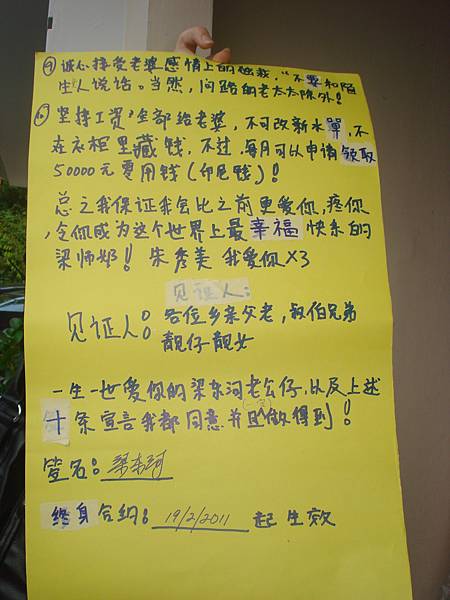 ⑨ 诚心接受老婆感情上的拯救，“不要和陌
生人说话。当然，问路的老太太除外！
⑩ 坚持工资“全部给老婆，不可改薪水單，不
在衣柜里藏钱，不过，每月可以申请领取
50000元零用钱（印尼钱）！
总之我保证我会比之前更爱你，疼你
，令你成为这个世界上最幸福快乐的
梁师郑！朱秀美 我爱你X3
见证人：
见证人：各位乡亲父老，叔伯兄弟
靓仔靓女
一生一世爱你的梁东河老公仔，以及上述
十条宣言我都同意并且一定做得到！
签名：梁东河
终身合约：19/2/2011 起生效